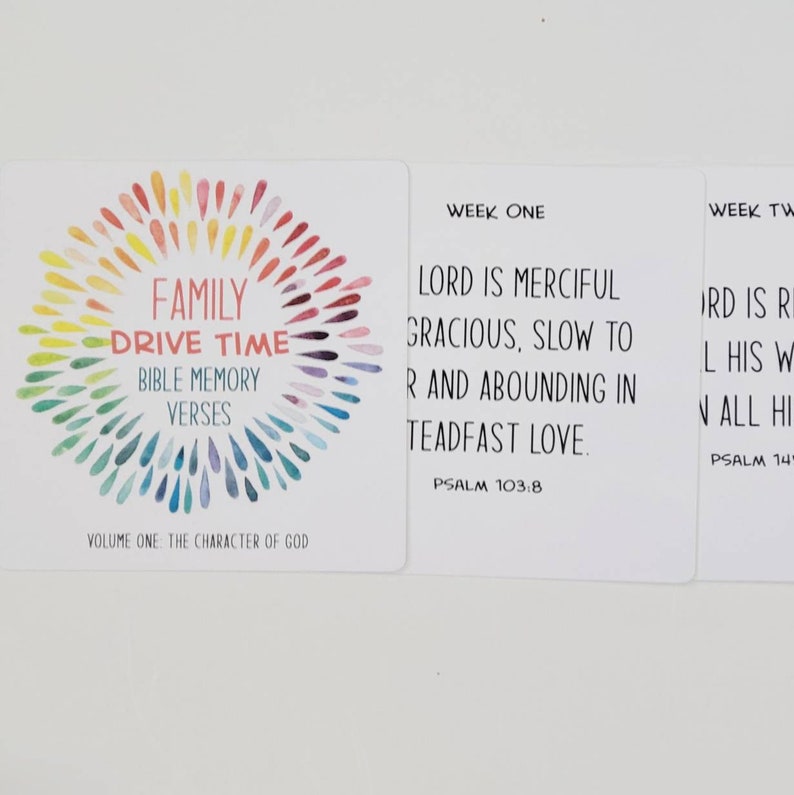 FAMILY
DRIVE TIME
BIBLE MEMORY
VERSES
VOLUME ONE: THE CHARACTER OF GOD
WEEK ONE
LORD IS MERCIFUL
GRACIOUS, SLOW TO
AND ABOUNDING IN
TEADFAST LOVE.
PSALM 103:8
WEEK TW
RD IS R
L HIS W
N ALL HI
PSALM 14